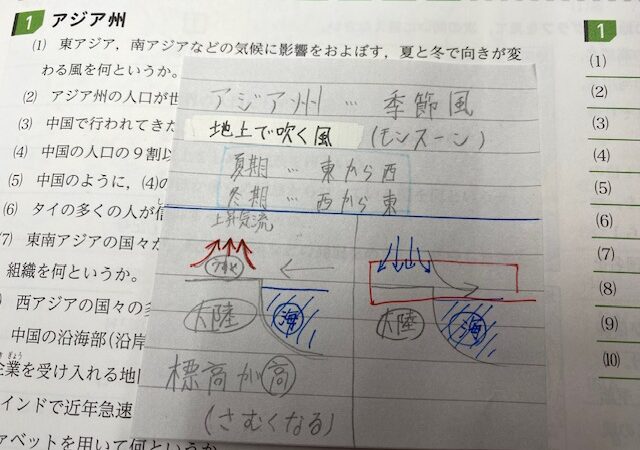 1 アジア州
(1) 東アジア，南アジアなどの気候に影響をおよぼす，夏と冬で向きが変
わる風を何というか。
(2) アジア州の人口が世
(3) 中国で行われてきた
(4) 中国の人口の9割以
(5) 中国のように，(4)の
(6) タイの多くの人が信
(7) 東南アジアの国々が
組織を何というか。
西アジアの国々の多
中国の沿海部(沿岸
企業を受け入れる地
インドで近年急速
アベットを用いて何というか
アジア州 … 季節風
地上で吹く風 (モンスーン)
夏期 … 東から西
冬期 … 西から東
上昇気流
大陸
海
標高が高
(さむくなる)
大陸
海
1
(1)
(2)
(3)
(4)
(5)
(6)
(7)
(8)
(9)
(10)